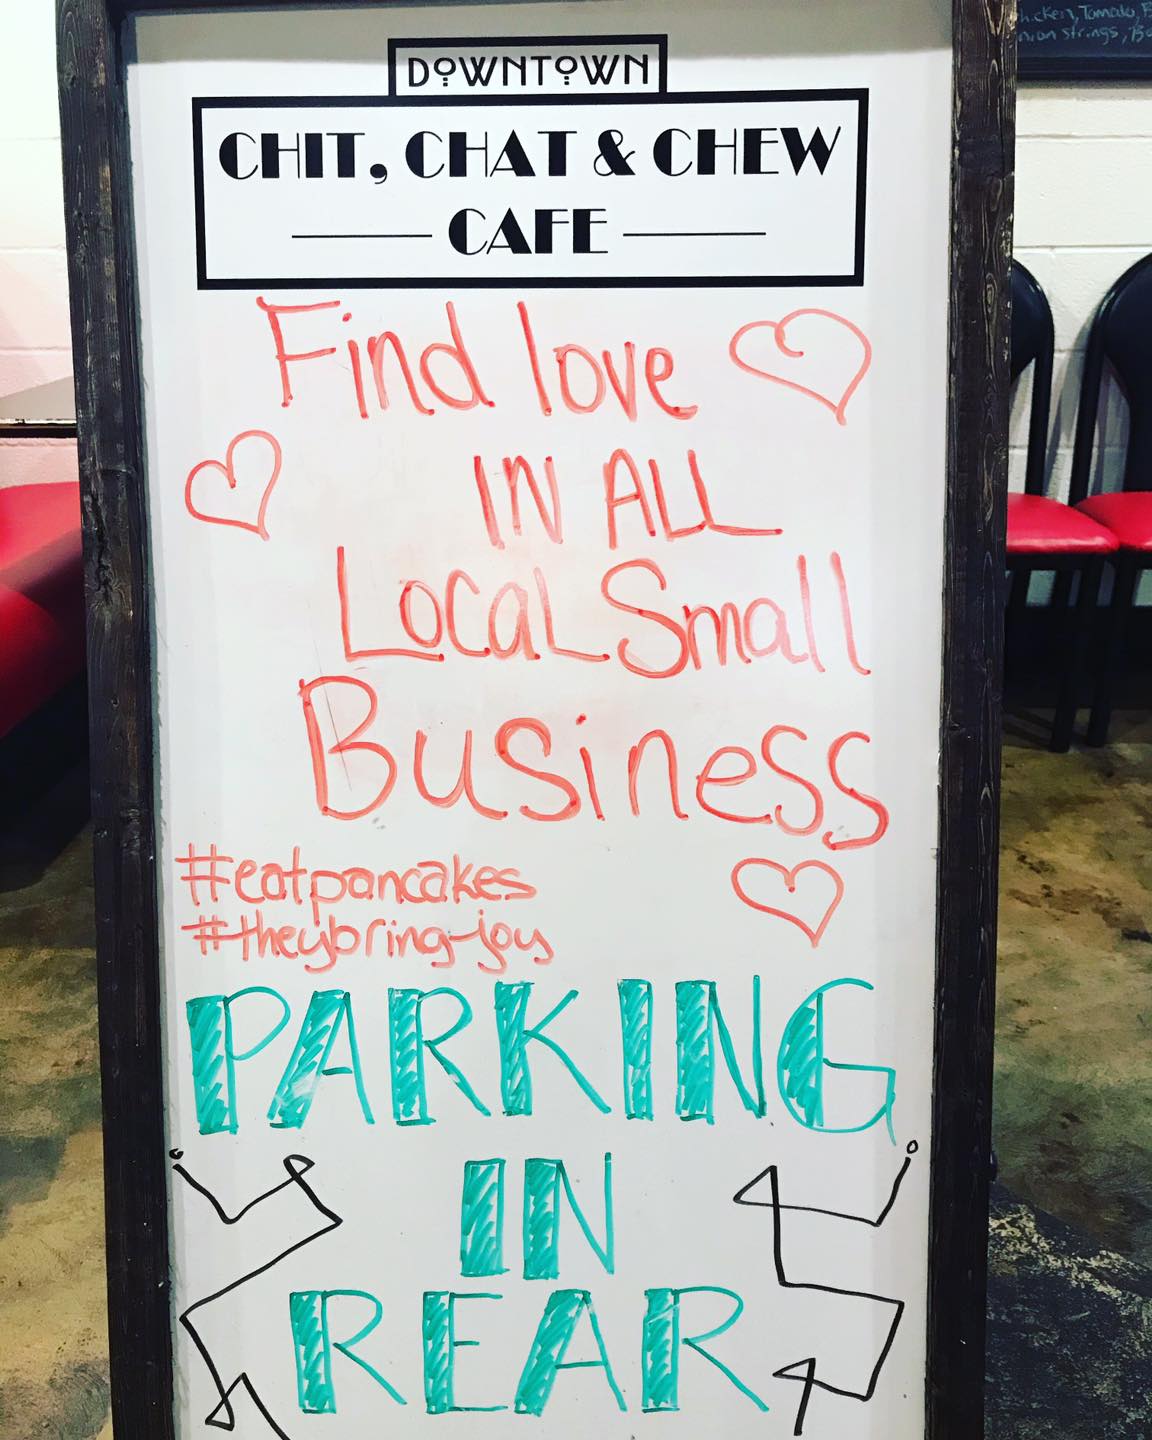 DOWNTOWN
CHIT, CHAT & CHEW
CAFE
Find love
IN ALL
LocaL Small
Business
#eatpancakes
#theybringjoy
PARKING
IN
REAR
hicken, Tomato,
nion strings,